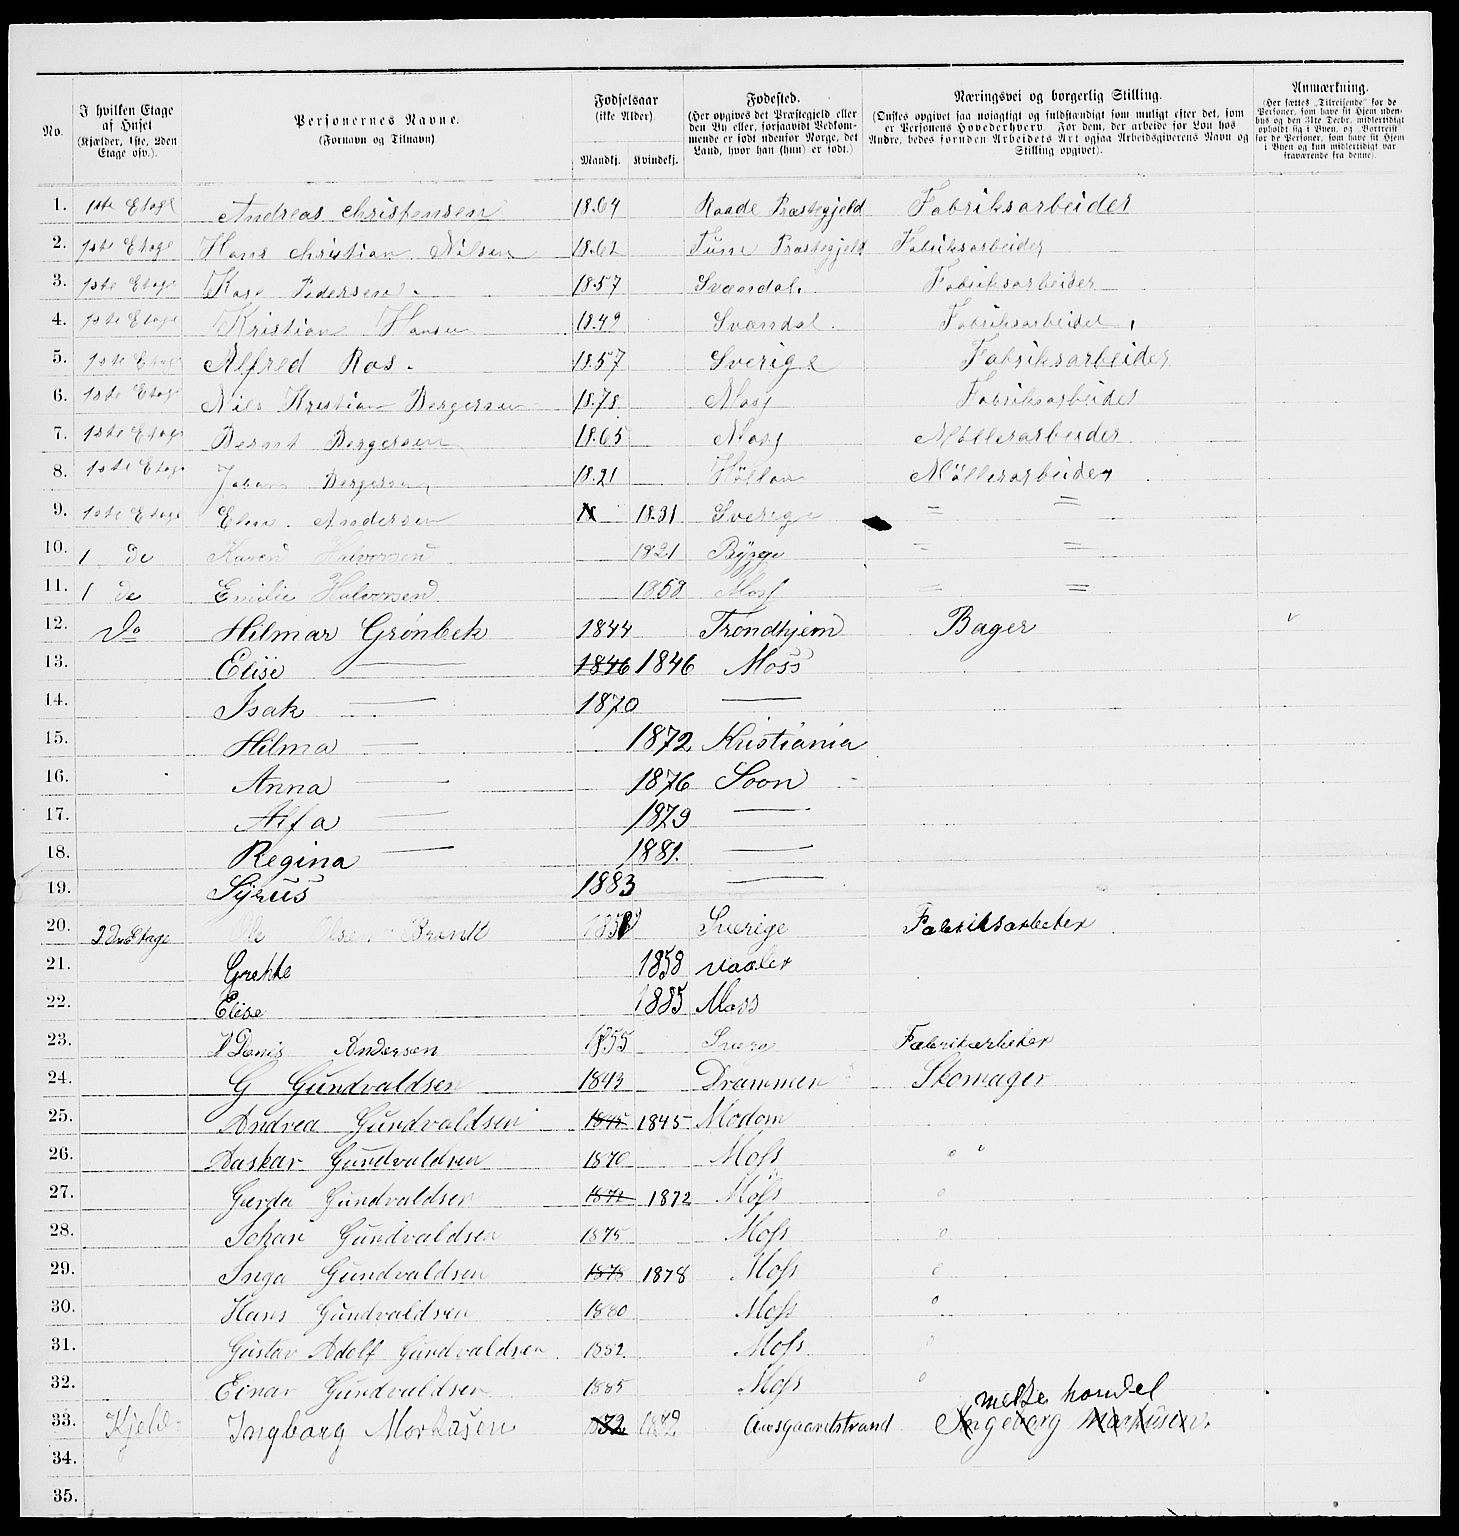 No.
I hvilken Etage af Huset (Kjælder, 1ste, 2den Etage osv.).
Personernes Navne. (Fornavn og Tilnavn)
Fødselsaar (ikke Alder).
Mandkj. Kvindekj.
Fødested. (Her opgives det Præstegjeld eller den By eller, forsaavidt Vedkommende er født udenfor Norge, det Land, hvor han (hun) er født.)
Næringsvei og borgerlig Stilling. (Ønskes opgivet saa nøiagtigt og fuldstændigt som muligt efter det, som er Personens Hovederhverv. For dem, der arbeide for Løn hos Andre, bedes foruden Arbeidets Art ogsaa Arbeidsgiverens Navn og Stilling opgivet).
Anmærkning. (Her sættes „Tilreisende" for de Personer, som have sit Hjem udenbys og den 31te Decbr. midlertidigt opholdt sig i Byen, og „Bortreist" for de Personer, som have sit Hjem i Byen og kun midlertidigt var fraværende fra denne).
1. 1ste Etage Andreas Christensen 1864 Raade Præstegjeld Fabriksarbeider
2. 1ste Etage Hans Christian Nilsen 1862 Tune Præstegjeld Fabriksarbeider
3. 1ste Etage Pedersen. 1857 Svændal. Fabriksarbeider
4. 1ste Etage Kristian Hansen 1849 Svændal. Fabriksarbeider
5. 1ste Etage Alfred Ros. 1857 Sverige Fabriksarbeider
6. 1ste Etage Nils Kristian Bergersen 1878 Moss Fabriksarbeider
7. 1ste Etage Bernt Bergersen 1865 Moss Møllerarbeider
8. 1ste Etage Johan Bergersen 1821 Møllerarbeider
9. 1ste Etage Andersen 18 1831 Sverige = =
10. 1 do Karen Halvorsen 1821 Rygge = =
11. 1 do Emilie Halvorsen 1868 Moss = =
12. Do Hilmar Grønbek 1844 Trondhjem Bager
13. Elise — 1846 1846 Moss
14. Isak — 1870 —
15. Hilma — 1872 Kristiania
16. Anna — 1876 Soon
17. Alfa — 1879 —
18. Regina — 1881. —
19. Syrus 1883 —
20. 2den Etage Ole Olsen Brandt Sverige Fabriksarbeter
21. Grethe 1858 Vaaler
22. Elise 1885 Moss
23. Andersen 1855 Fabrikarbeter
24. G Gundvaldsen 1843 Drammen Skomager
25. Andrea Gundvaldsen 1845 1845 Modom
26. Oaskar Gundvaldsen 1870 Moss "
27. Gerda Gundvaldsen 1872 1872 Moss "
28. Johan Gundvaldsen 1875 Moss "
29. Inga Gundvaldsen 1878 1878 Moss "
30. Hans Gundvaldsen 1880 Moss "
31. Gustav Adolf Gundvaldsen 1882 Moss "
32. Einar Gundvaldsen 1885 Moss "
melke handel
33. Kjeld. Ingborg Markusen Aasgaardstrand Ingeborg Markusen.
34.
35.